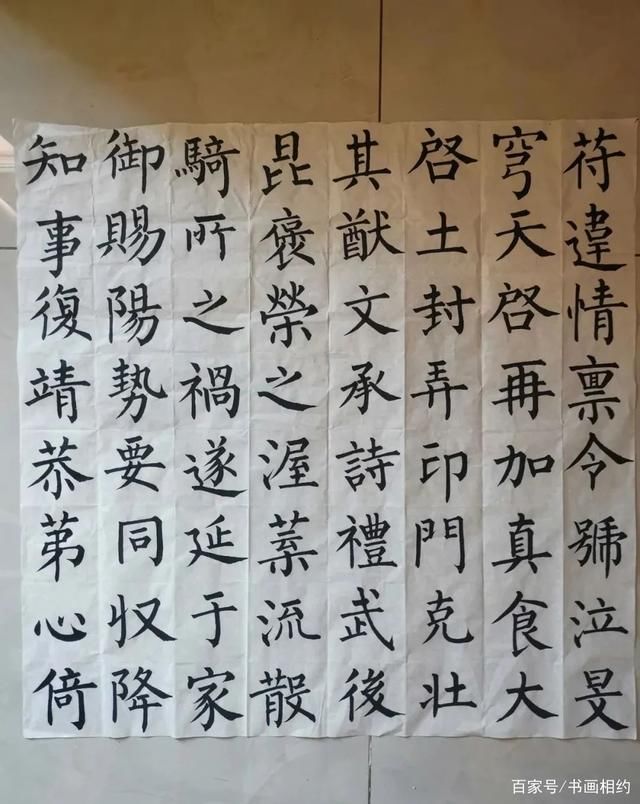 苻違情禀令號泣旻
穹天啓再加真食大
啓土封弄印門克壮
其猷文承詩禮武後
昆褒榮之渥流散
騎所之禍遂延于家
御賜陽勢要同収降
知事復靖恭苐心倚
百家号/书画相约